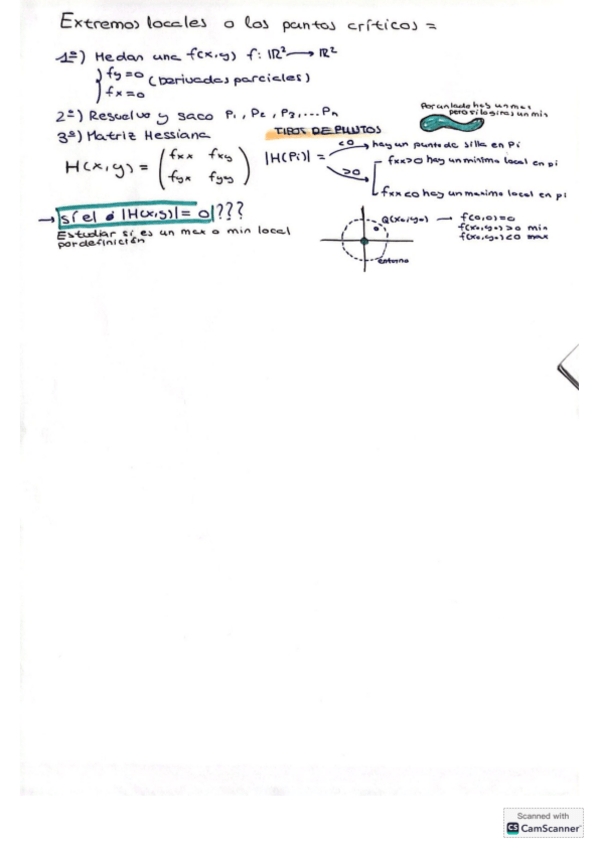 Extremos locales o los puntos críticos =
1º) Me dan una f(x,y) f: ℝ² → ℝ²
{ fy=0 (Derivadas parciales)
fx=0
2º) Resuelvo y saco P₁, P₂, P₃, ... Pₙ
Por un lado hay un max
pero si lo giras un min
3º) Matriz Hessiana
TIPOS DE PUNTOS
H(x,y) = ( fxx fxy
fyx fyy )
|H(Pi)| =
<0 → hay un punto de silla en Pi
>0
fxx>0 hay un mínimo local en pi
fxx<0 hay un maximo local en pi
→ si el |H(x,y)| = 0 ???
Estudiar si es un max o min local
por definición
Q(x₀,y₀) → f(0,0)=0
f(x₀,y₀)>0 min
f(x₀,y₀)<0 max
entorno
Scanned with
CS CamScanner